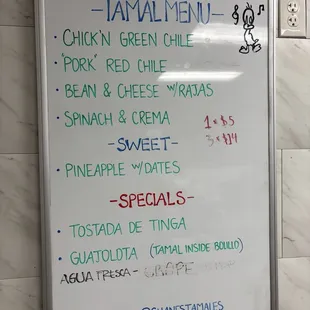 -TAMAL MENU-
• CHICK'N GREEN CHILE
• 'PORK' RED CHILE
• BEAN & CHEESE W/RAJAS
• SPINACH & CREMA
1 x $5
3 x $14
-SWEET-
• PINEAPPLE W/DATES
-SPECIALS-
• TOSTADA DE TINGA
• GUAJOLOTA (TAMAL INSIDE BOLILLO)
AGUA FRESCA -